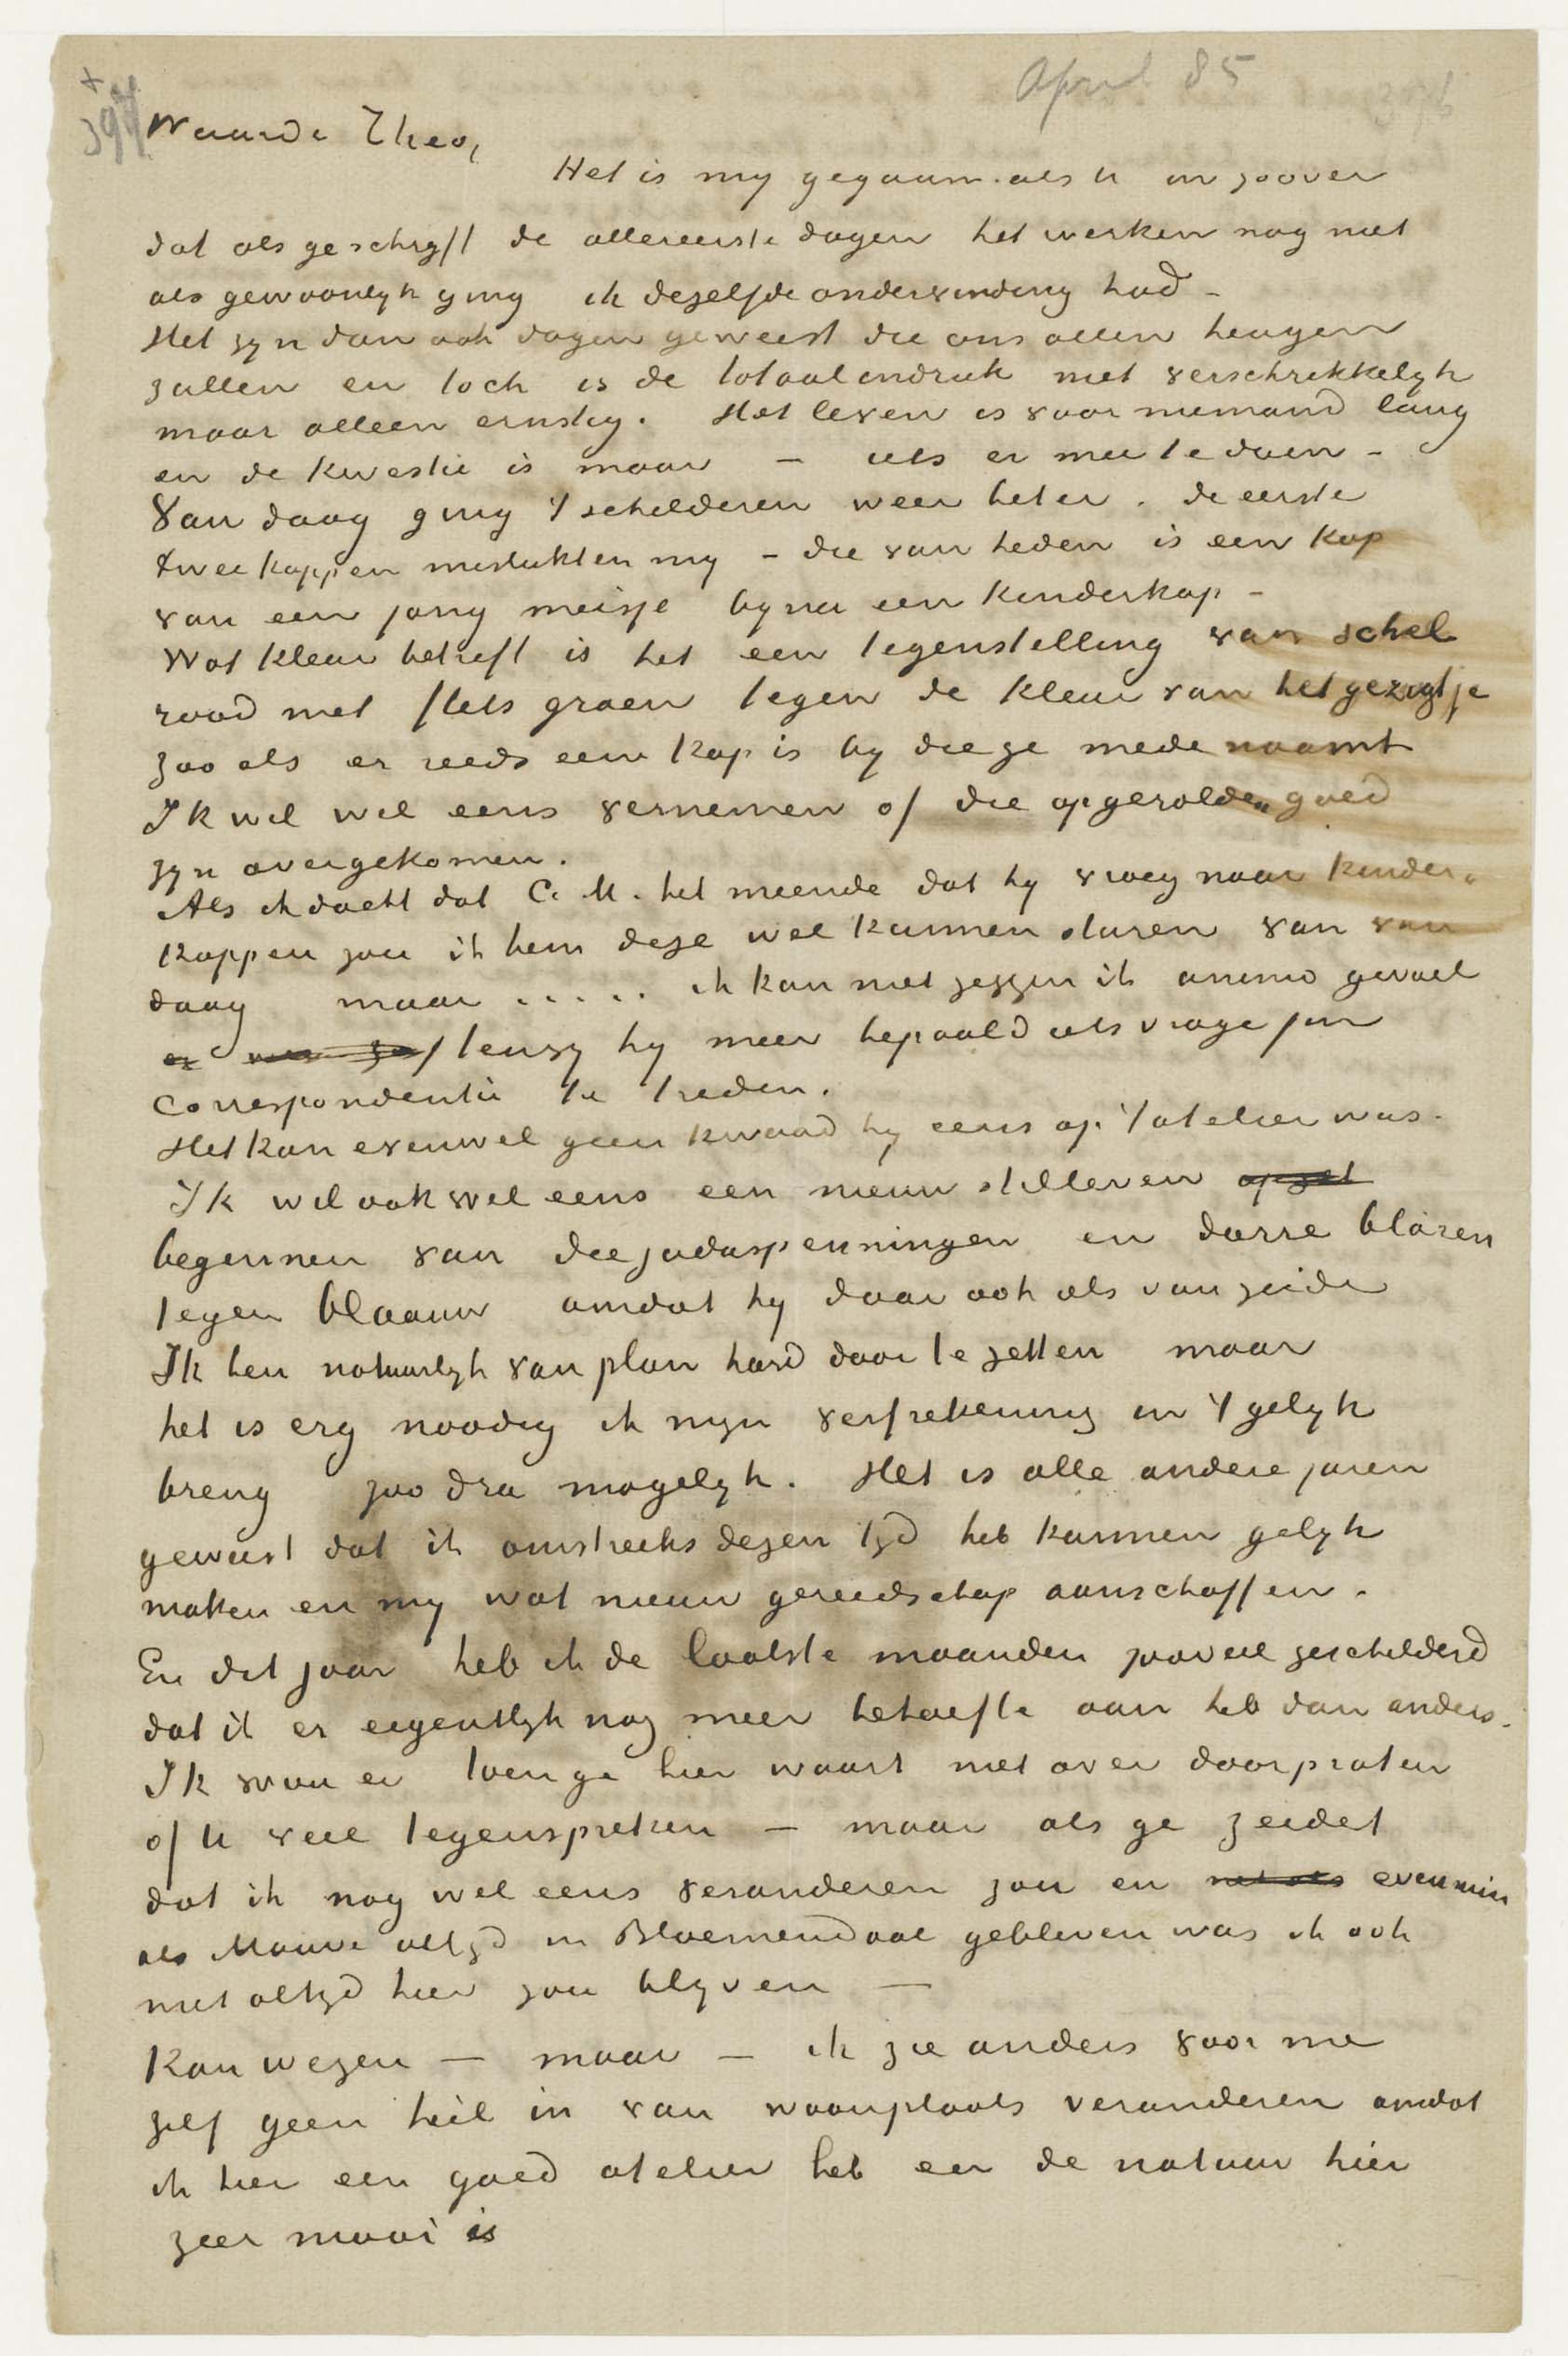 April 85
Waarde Theo,
Het is my gegaan als U in zoover
dat als ge schryft de allereerste dagen het werken nog niet
als gewoonlyk ging ik dezelfde ondervinding had –
Het zyn dan ook dagen geweest die ons allen heugen
zullen en toch is de totaalindruk niet verschrikkelyk
maar alleen ernstig. Het leven is voor niemand lang
en de kwestie is maar – iets er mee te doen –
Van daag ging 't schilderen weer beter. de eerste
twee koppen mislukten my – die van heden is een kop
van een jong meisje byna een kinderkop –
Wat kleur betreft is het een tegenstelling van schel
rood met flets groen tegen de kleur van het gezigtje
zoo als er reeds een kop is by die ge mede naamt
Ik wil wel eens vernemen of die opgerolden goed
zyn overgekomen.
Als ik dacht dat C. M. het meende dat hy vroeg naar kinder
koppen zou ik hem deze wel kunnen sturen van van
daag maar ..... ik kan niet zeggen ik animo gevoel
tenzy hy meer bepaald iets vrage in
correspondentie te treden.
Het kan evenwel geen kwaad hy eens op 't atelier was.
Ik wil ook wel eens een nieuw stilleven opzet
beginnen van die judaspenningen en dorre blaren
tegen blaauw omdat hy daar ook iets van zeide
Ik ben natuurlyk van plan hard door te zetten maar
het is erg noodig ik myn verfrekening in 't gelyk
breng zoo dra mogelyk. Het is alle andere jaren
geweest dat ik omstreeks dezen tyd heb kunnen gelyk
maken en my wat nieuw gereedschap aanschaffen.
En dit jaar heb ik de laatste maanden zooveel geschilderd
dat ik er eigentlyk nog meer behoefte aan heb dan anders.
Ik wou er toen ge hier waart niet over doorpraten
of U veel tegenspreken – maar als ge zeidet
dat ik nog wel eens veranderen zou en evenmin
als Mauve altyd in Bloemendaal gebleven was ik ook
niet altyd hier zou blyven —
Kan wezen — maar — ik zie anders voor me
zelf geen heil in van woonplaats veranderen omdat
ik hier een goed atelier heb en de natuur hier
zeer mooi is